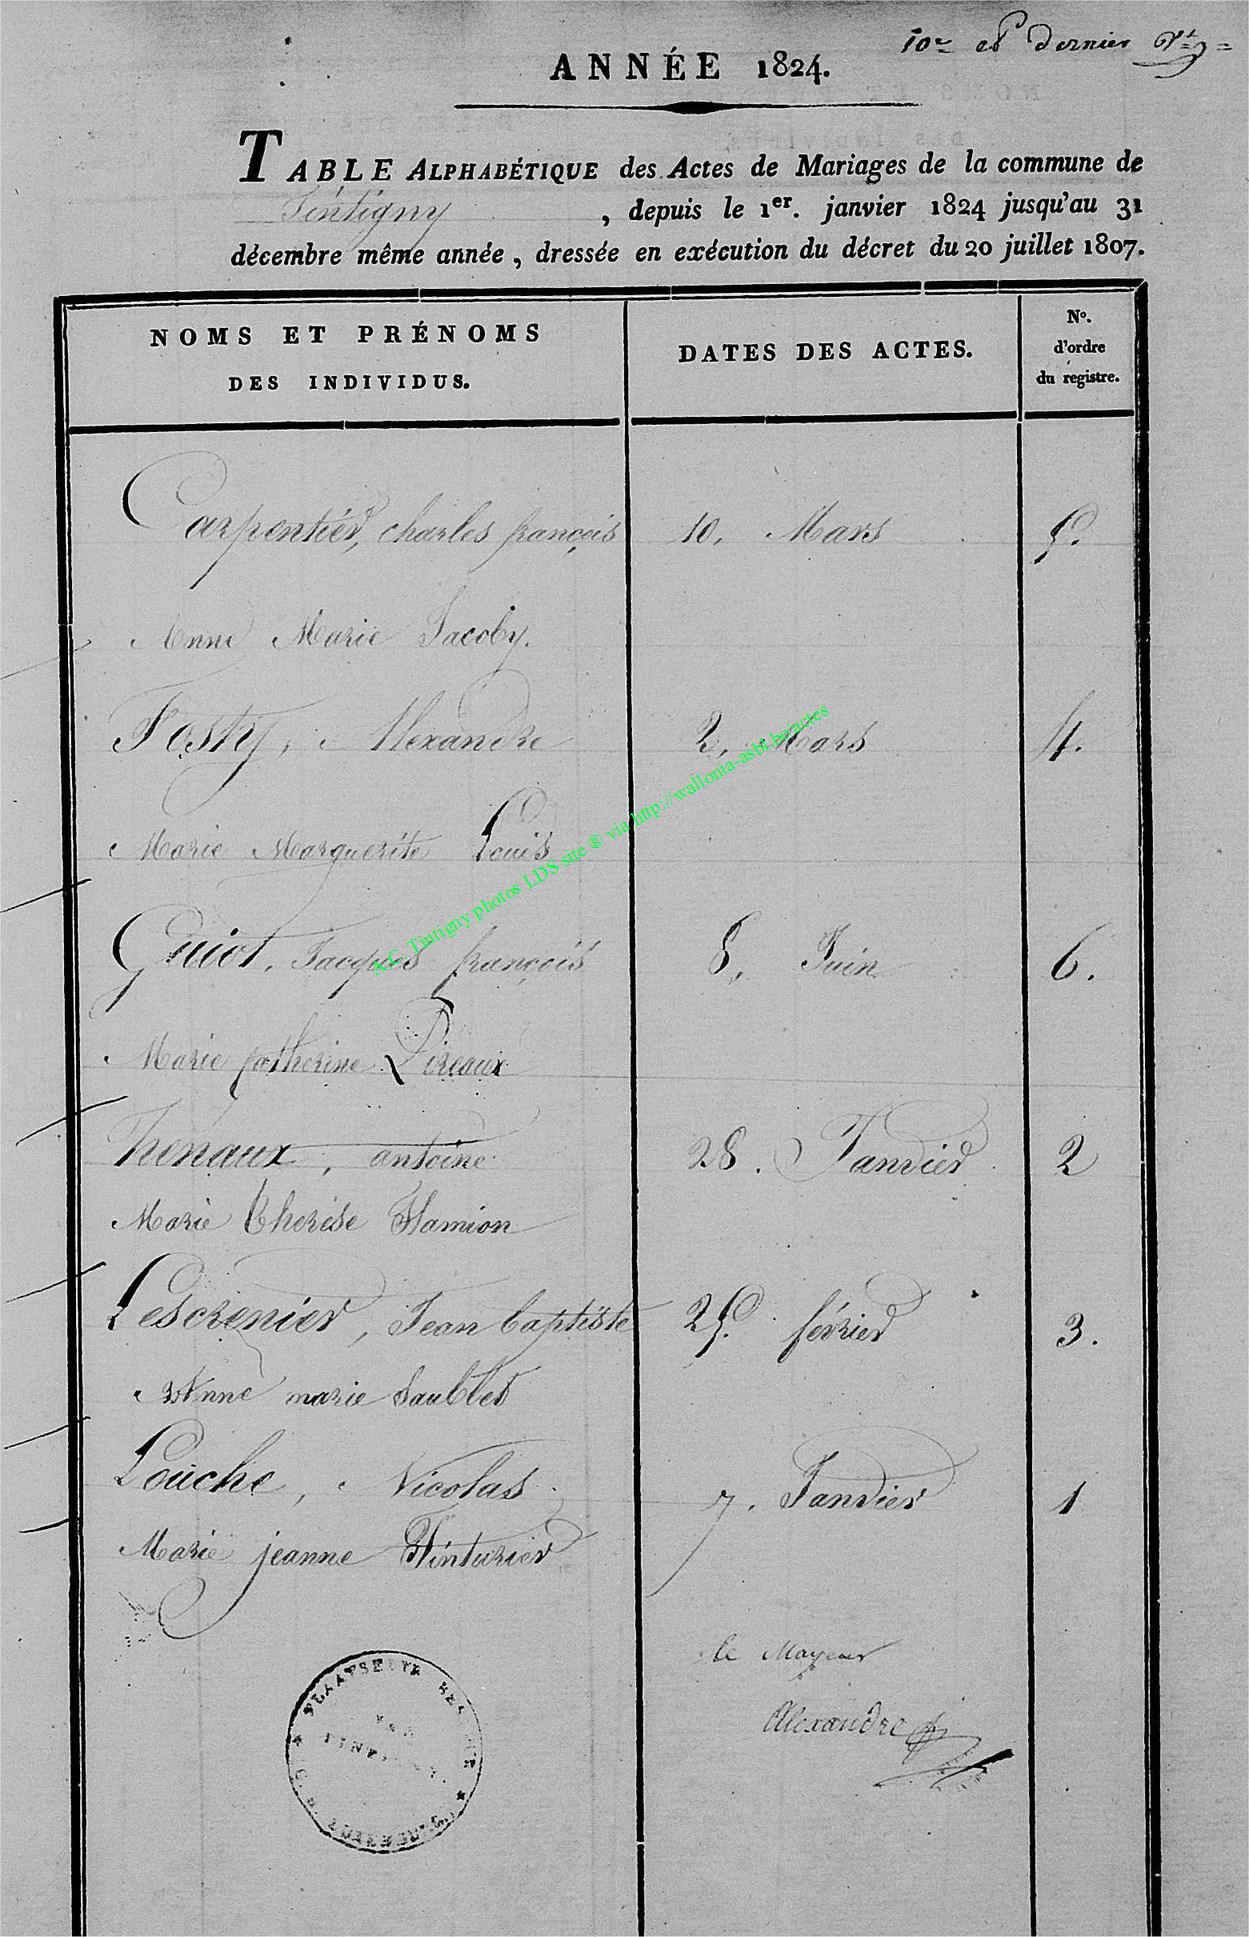 10e et dernier
ANNÉE 1824.
TABLE ALPHABÉTIQUE des Actes de Mariages de la commune de
Tintigny , depuis le 1er. janvier 1824 jusqu'au 31
décembre même année, dressée en exécution du décret du 20 juillet 1807.
NOMS ET PRÉNOMS
DES INDIVIDUS.
DATES DES ACTES.
No.
d'ordre
du registre.
Carpentier, charles françois 10, Mars 5.
Anne Marie Jacoby.
Fosty, Alexandre 2, Mars 4.
Marie Marguerite Louis
Guiot, Jacques françois 8, Juin 6.
Marie catherine Pireaux
henaux, antoine 28. Janvier 2
Marie Therése Hamion
Lescrenier, Jean baptiste 25. février 3.
Anne marie Saublet
Louche, Nicolas 7. Janvier 1
Marie jeanne Tinturier
le Mayeur
Alexandre
PLAATSELYK
A.C. Tintigny photos LDS site ® via http://wallonia-asbl.be/actes